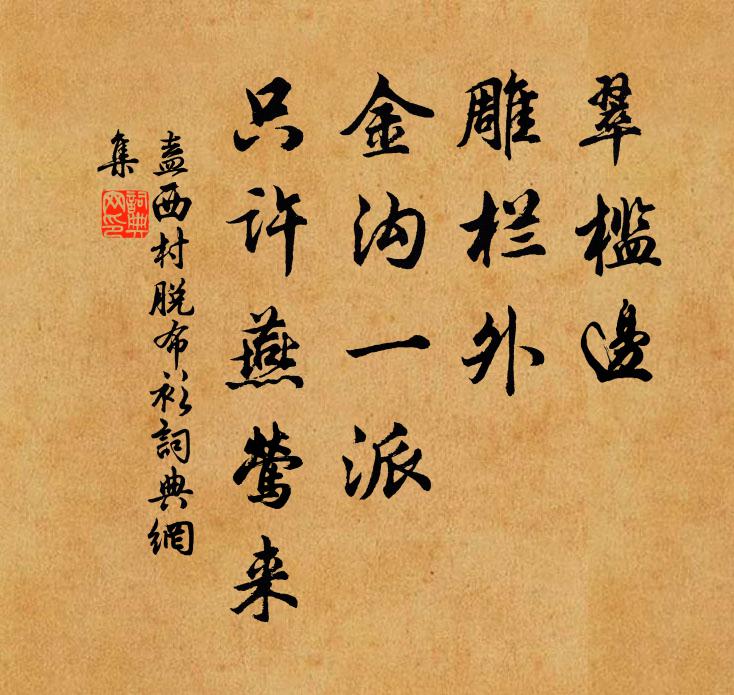 翠槛邊
雕栏外
金沟一派
只许燕莺来
盍西村脱布衫詞典網
集
詞典
网印